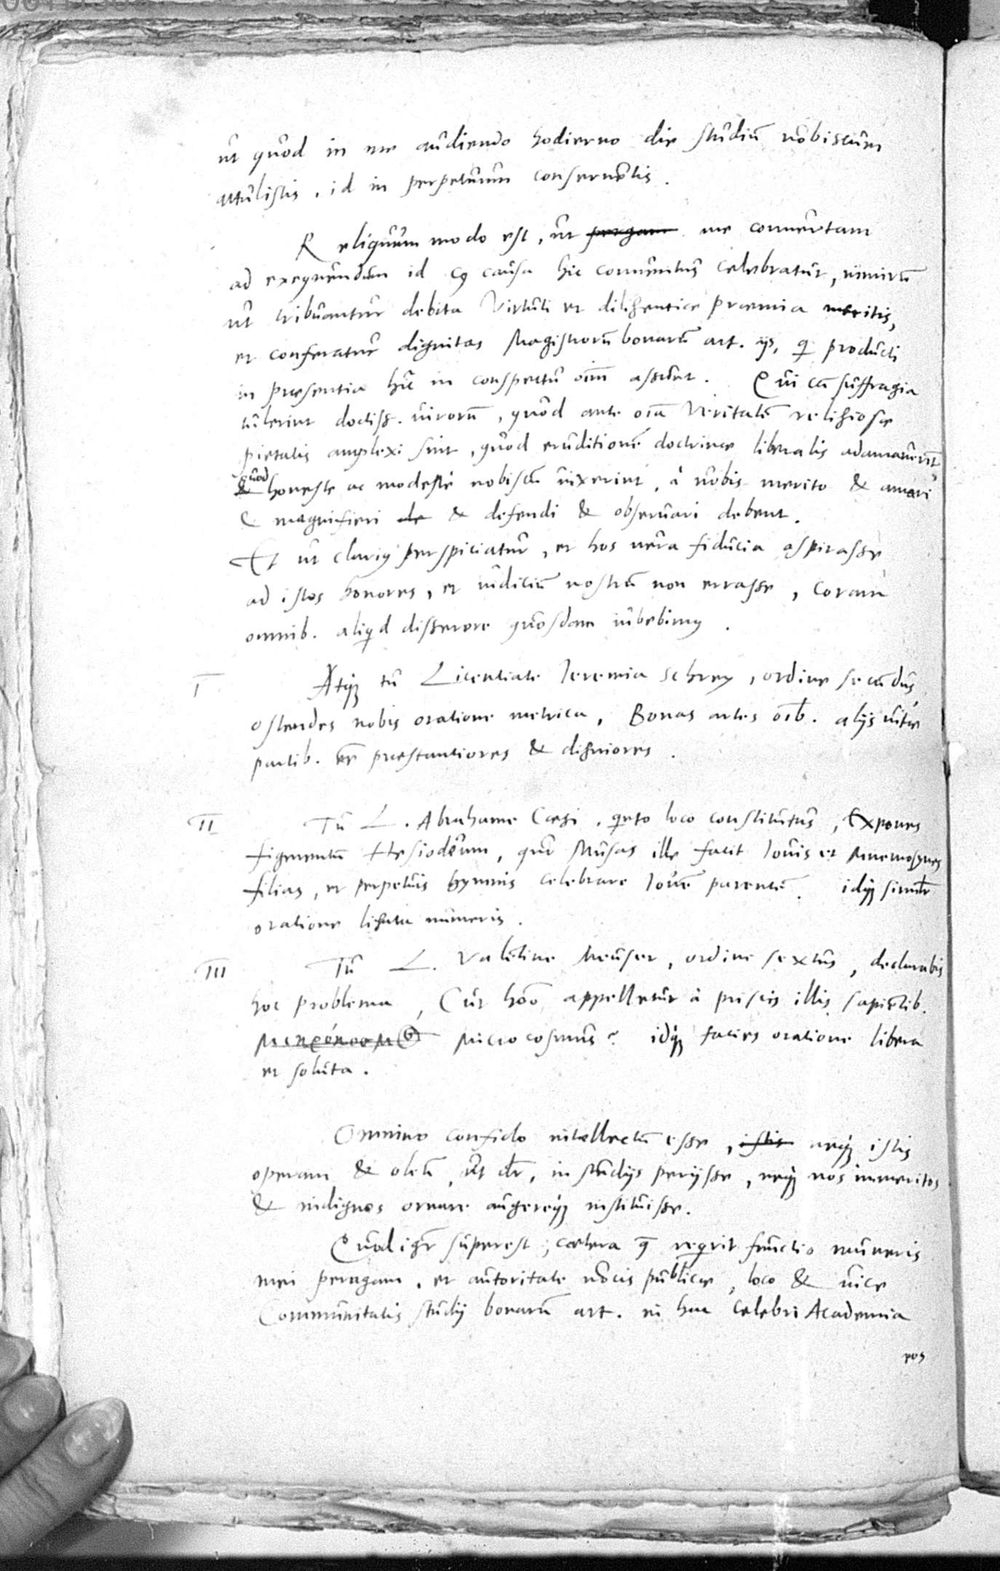 ut quod in me audiendo hodierno die studiū vobiscum
attulistis, id in perpetuum conservetis.
Reliquum modo est, ut pergam me convertam
ad exequendum id cuius causa hic conventus celebratur, nimirū
ut tribuantur debita Virtuti et diligentiae praemia meritis,
et conferatur dignitas Magistrorū bonarū art. ijs, qi producti
in praesentia hūc in conspectū oīm assunt. Qui cū suffragia
tulerint doctiss. virorū, quod ante oīa Veritatē religiosae
pietatis amplexi sint, quod eruditionē doctrinae liberalis adamaverīt
quod
& honeste ac modeste nobiscū vixerint, à nobis merito & amari
& magnifieri de & defendi & observari debent.
Et ut clarius perspiciatur, et hos vera fiducia aspirasse
ad istos honores, et iudiciū nostrū non errasse, coram
omnib. aliqid disserere quosdam iubebimus.
I Atqz tu Licentiate Ieremia Schrey, ordine secundus,
ostendes nobis oratione metrica, Bonas artes oīb. alijs vitae
partib. esse praestantiores & digniores.
II Tu L. Abrahame Caesi, qinto loco constitutus, Expones
figmentū Hesiodeum, qur Musas ille facit Iovis et Mnemosynes
filias, et perpetuis hymnis celebrare Iovē parentē. idqz simīlr
oratione ligata numeris.
III Tu L. Valētine Meuser, ordine sextus, declarabis
hoc problema, Cur homō appelletur à priscis illis sapiētib.
Microcosmus? idqz facies oratione libera
et soluta.
Omnino confido intellectū esse, istis neqz istis
operam & oleū, ut dr, in studijs perijsse, neqz nos immeritos
& indignos ornare augereqz instituisse.
Quod igr superest, caetera q reqirit functio muneris
mei peragam, et autoritate vocis publicae, loco & vice
Communitatis studij bonarū art. in hac celebri Academia
pos